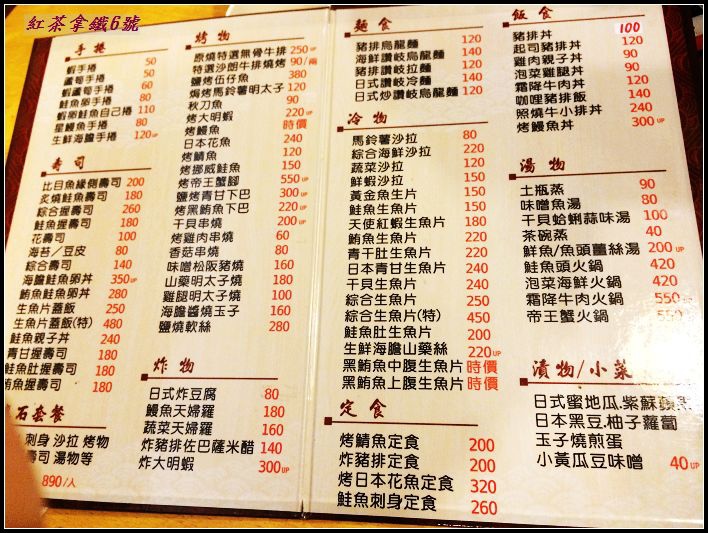 紅茶拿鐵6號
手捲
蝦手捲 50
蘆筍手捲 50
蝦蘆筍手捲 60
鮭魚卵手捲 80
蝦卵鮭魚自己捲 110
星鰻魚手捲 80
生鮮海膽手捲 120UP
壽司
比目魚緣側壽司 200
炙燒鮭魚壽司 180
綜合握壽司 260
鮭魚握壽司 180
花壽司 100
海苔／豆皮 80
綜合壽司 140
海膽鮭魚卵丼 350UP
鮪魚鮭魚卵丼 280
生魚片蓋飯 210
生魚片蓋飯(特) 480
鮭魚親子丼 240
青甘握壽司 180
鮭魚肚握壽司 180
鮪魚握壽司 180
石套餐
刺身 沙拉 烤物
壽司 湯物等
890/人
烤物
原燒特選無骨牛排 250UP
特選沙朗牛排燒烤 90/兩
鹽烤伍仔魚 380
焗烤馬鈴薯明太子 120
秋刀魚 90
烤大明蝦 220UP
烤鰻魚 時價
日本花魚 240
烤鯖魚 90
烤挪威鮭魚 150
烤帝王蟹腳 550UP
鹽烤青甘下巴 300UP
烤黑鮪魚下巴 220UP
干貝串燒 200UP
烤雞肉串燒 60
香菇串燒 80
味噌松阪豬燒 160
山藥明太子燒 180
雞腿明太子燒 100
海膽醬燒玉子 160
鹽燒軟絲 280
炸物
日式炸豆腐 80
鰻魚天婦羅 180
蔬菜天婦羅 160
炸豬排佐巴薩米醋 140
炸大明蝦 300UP
麵食
豬排烏龍麵 120
海鮮讚岐烏龍麵 140
豬排讚岐拉麵 120
日式讚岐冷麵 140
日式炒讚岐烏龍麵 120
冷物
馬鈴薯沙拉 80
綜合海鮮沙拉 220
蔬菜沙拉 120
鮮蝦沙拉 150
黃金魚生片 150
鮭魚生魚片 150
天使紅蝦生魚片 220
鮪魚生魚片 220
青干肚生魚片 220
日本青甘生魚片 240
干貝生魚片 240
綜合生魚片 250
綜合生魚片(特) 450
鮭魚肚生魚片 280
生鮮海膽山藥絲 220UP
黑鮪魚中腹生魚片 時價
黑鮪魚上腹生魚片 時價
定食
烤鯖魚定食 200
炸豬排定食 200
烤日本花魚定食 320
鮭魚刺身定食 260
飯食
豬排丼 100
起司豬排丼 120
雞肉親子丼 90
泡菜雞腿丼 120
霜降牛肉丼 120
咖哩豬排飯 120
照燒牛小排丼 240
烤鰻魚丼 300UP
湯物
土瓶蒸 90
味噌魚湯 80
干貝蛤蜊蒜味湯 100
茶碗蒸 40
鮮魚/魚頭薑絲湯 200UP
鮭魚頭火鍋 420
泡菜海鮮火鍋 420
霜降牛肉火鍋 550UP
帝王蟹火鍋 550UP
漬物/小菜
日式蜜地瓜.紫蘇
日本黑豆.柚子蘿蔔
玉子燒煎蛋
小黃瓜豆味噌 40UP